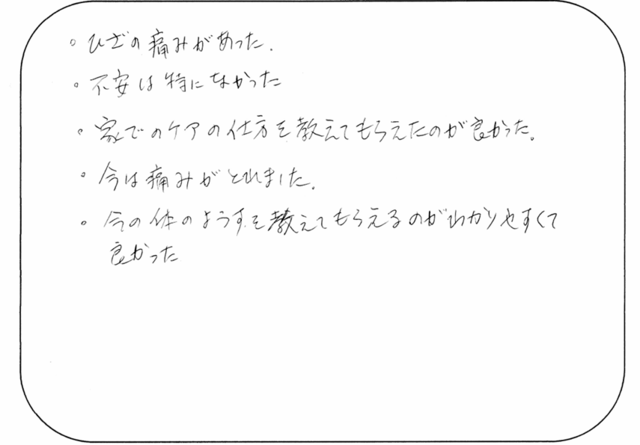 。ひざの痛みがあった.
。不安は特になかった
。家でのケアの仕方を教えてもらえたのが良かった。
。今は痛みがとれました。
。今の体のようすを教えてもらえるのがわかりやすくて
良かった